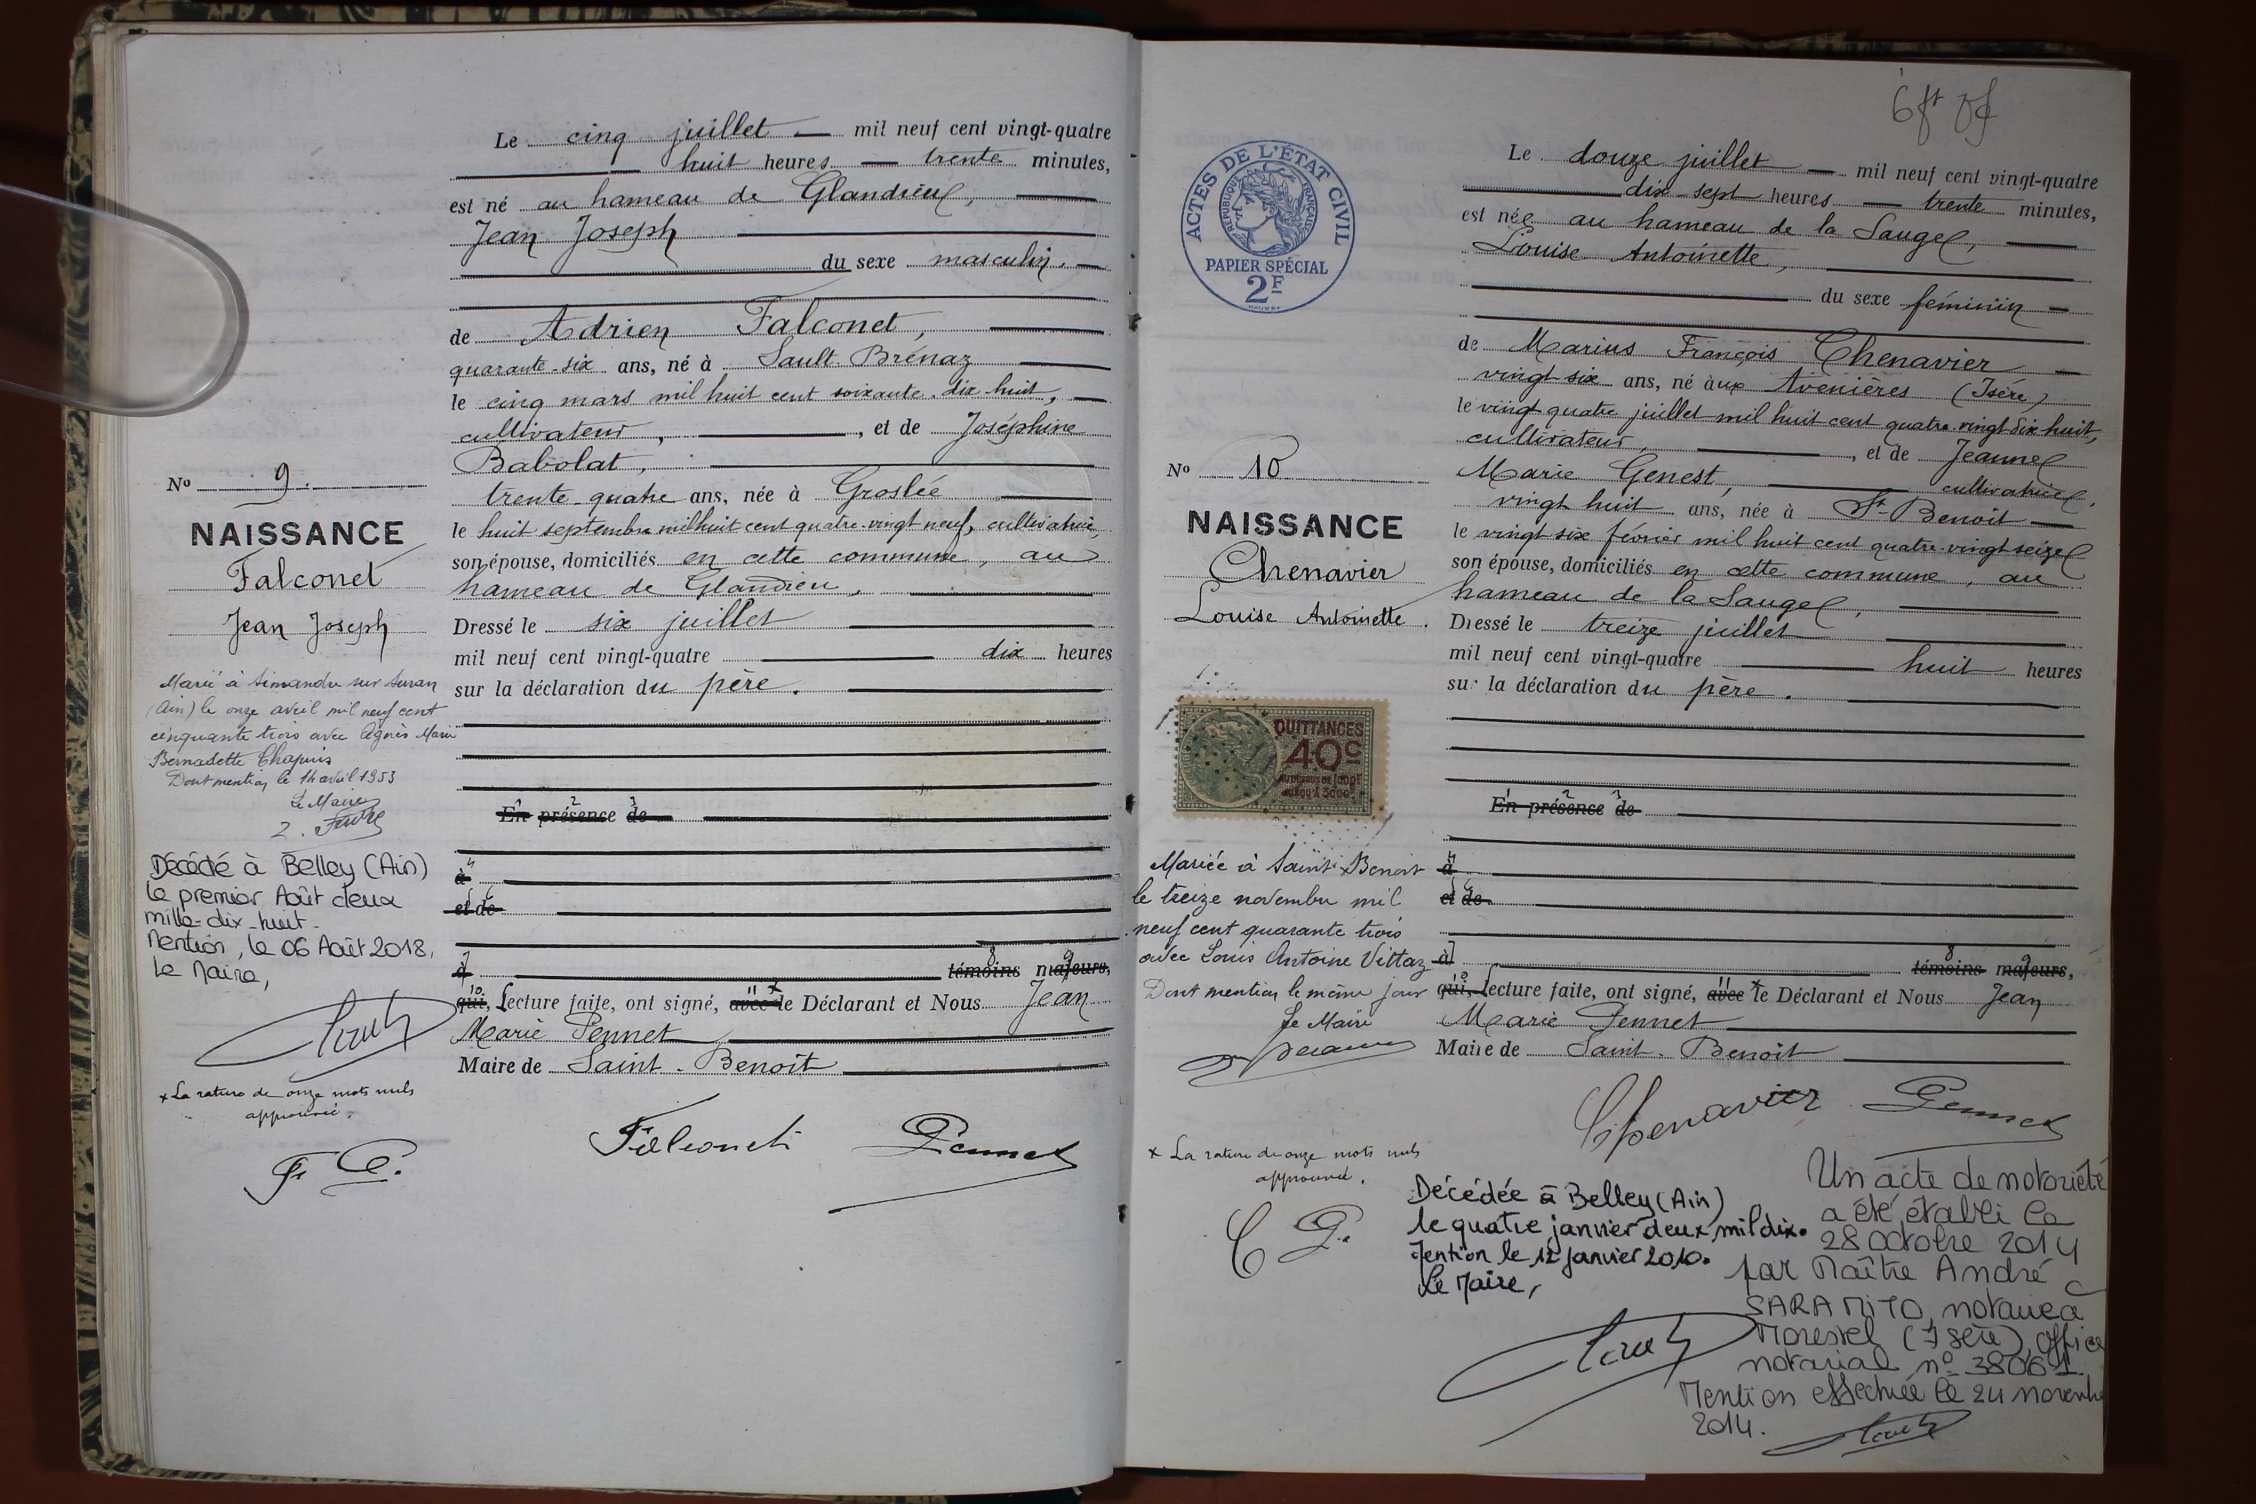 Le cinq juillet mil neuf cent vingt-quatre
huit heures trente minutes,
est né au hameau de Glandieu,
Jean Joseph
du sexe masculin.
de Adrien Falconet,
quarante-six ans, né à Sault-Brénaz
le cinq mars mil huit cent soixante-dix huit,
cultivateur, , et de Joséphine
Babolat,
trente-quatre ans, née à Groslée
le huit septembre mil huit cent quatre-vingt neuf, cultivatrice,
son épouse, domiciliés en cette commune, au
hameau de Glandieu,
Dressé le six juillet
mil neuf cent vingt-quatre dix heures
sur la déclaration du père.
En présence de
à
et de
à témoins majeurs,
qui, Lecture faite, ont signé, avec le Déclarant et Nous Jean
Marie Pennet
Maire de Saint-Benoît
Falconet Pennet
No 9.
NAISSANCE
Falconet
Jean Joseph
Marié à Simandre sur Suran
(Ain) le onze avril mil neuf cent
cinquante trois avec Agnès Marie
Bernadette Chapuis
Dont mention le 14 avril 1953
Le Maire
Décédé à Belley (Ain)
le premier Août deux
mille-dix-huit.
Mention, le 06 Août 2018.
Le Maire,
x La rature de onze mots nuls
approuvée.
F. P.
ACTES DE L'ÉTAT CIVIL
RÉPUBLIQUE FRANÇAISE
PAPIER SPÉCIAL
2F
Le douze juillet mil neuf cent vingt-quatre
dix-sept heures trente minutes,
est née au hameau de la Sauge,
Louise Antoinette,
du sexe féminin
de Marius François Chenavier
vingt six ans, né aux Avenières (Isère)
le vingt quatre juillet mil huit cent quatre-vingt dix huit,
cultivateur, , et de Jeanne
Marie Genest, cultivatrice,
vingt huit ans, née à St-Benoit
le vingt six février mil huit cent quatre-vingt seize
son épouse, domiciliés en cette commune, au
hameau de la Sauge,
Dressé le treize juillet
mil neuf cent vingt-quatre huit heures
sur la déclaration du père.
En présence de
à
et de
à témoins majeurs,
qui, Lecture faite, ont signé, avec le Déclarant et Nous Jean
Marie Pennet
Maire de Saint-Benoit
Chenavier Pennet
No 10
NAISSANCE
Chenavier
Louise Antoinette.
QUITTANCES
40c
Mariée à Saint-Benoit
le treize novembre mil
neuf cent quarante trois
avec Louis Antoine Vittaz
Dont mention le même jour
Le Maire
x La rature de onze mots nuls
approuvée.
C P.
Décédée à Belley (Ain)
le quatre janvier deux mil dix.
Mention le 12 janvier 2010.
Le Maire,
Un acte de notoriété
a été établi le
28 octobre 2014
par Maître André
SARAMITO, notaire à
Morestel (Isère), office
notarial n° 38061.
Mention effectuée le 24 novembre
2014.